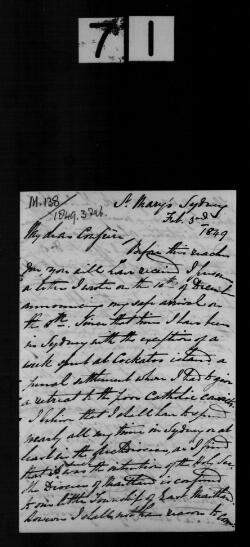 71
M.138
1849.3 Feb.
St. Mary's Sydney
Feb. 3rd
1849
My dear Confrere,
Before this reaches
you you will have received I hope
a letter I wrote on the 10th of December
announcing my safe arrival on
the 8th. Since that time I have been
in Sydney with the exception of a
week spent at Cockatoo island a
penal settlement where I had to give
a retreat to the poor Catholic convicts
I believe that I shall have to spend
nearly all my time in Sydney or at
least in the Diocese, as I find
that the intention of the Holy See
the Diocese of Maitland is confined
to one little Township of East Maitland
however I shall neither reason to